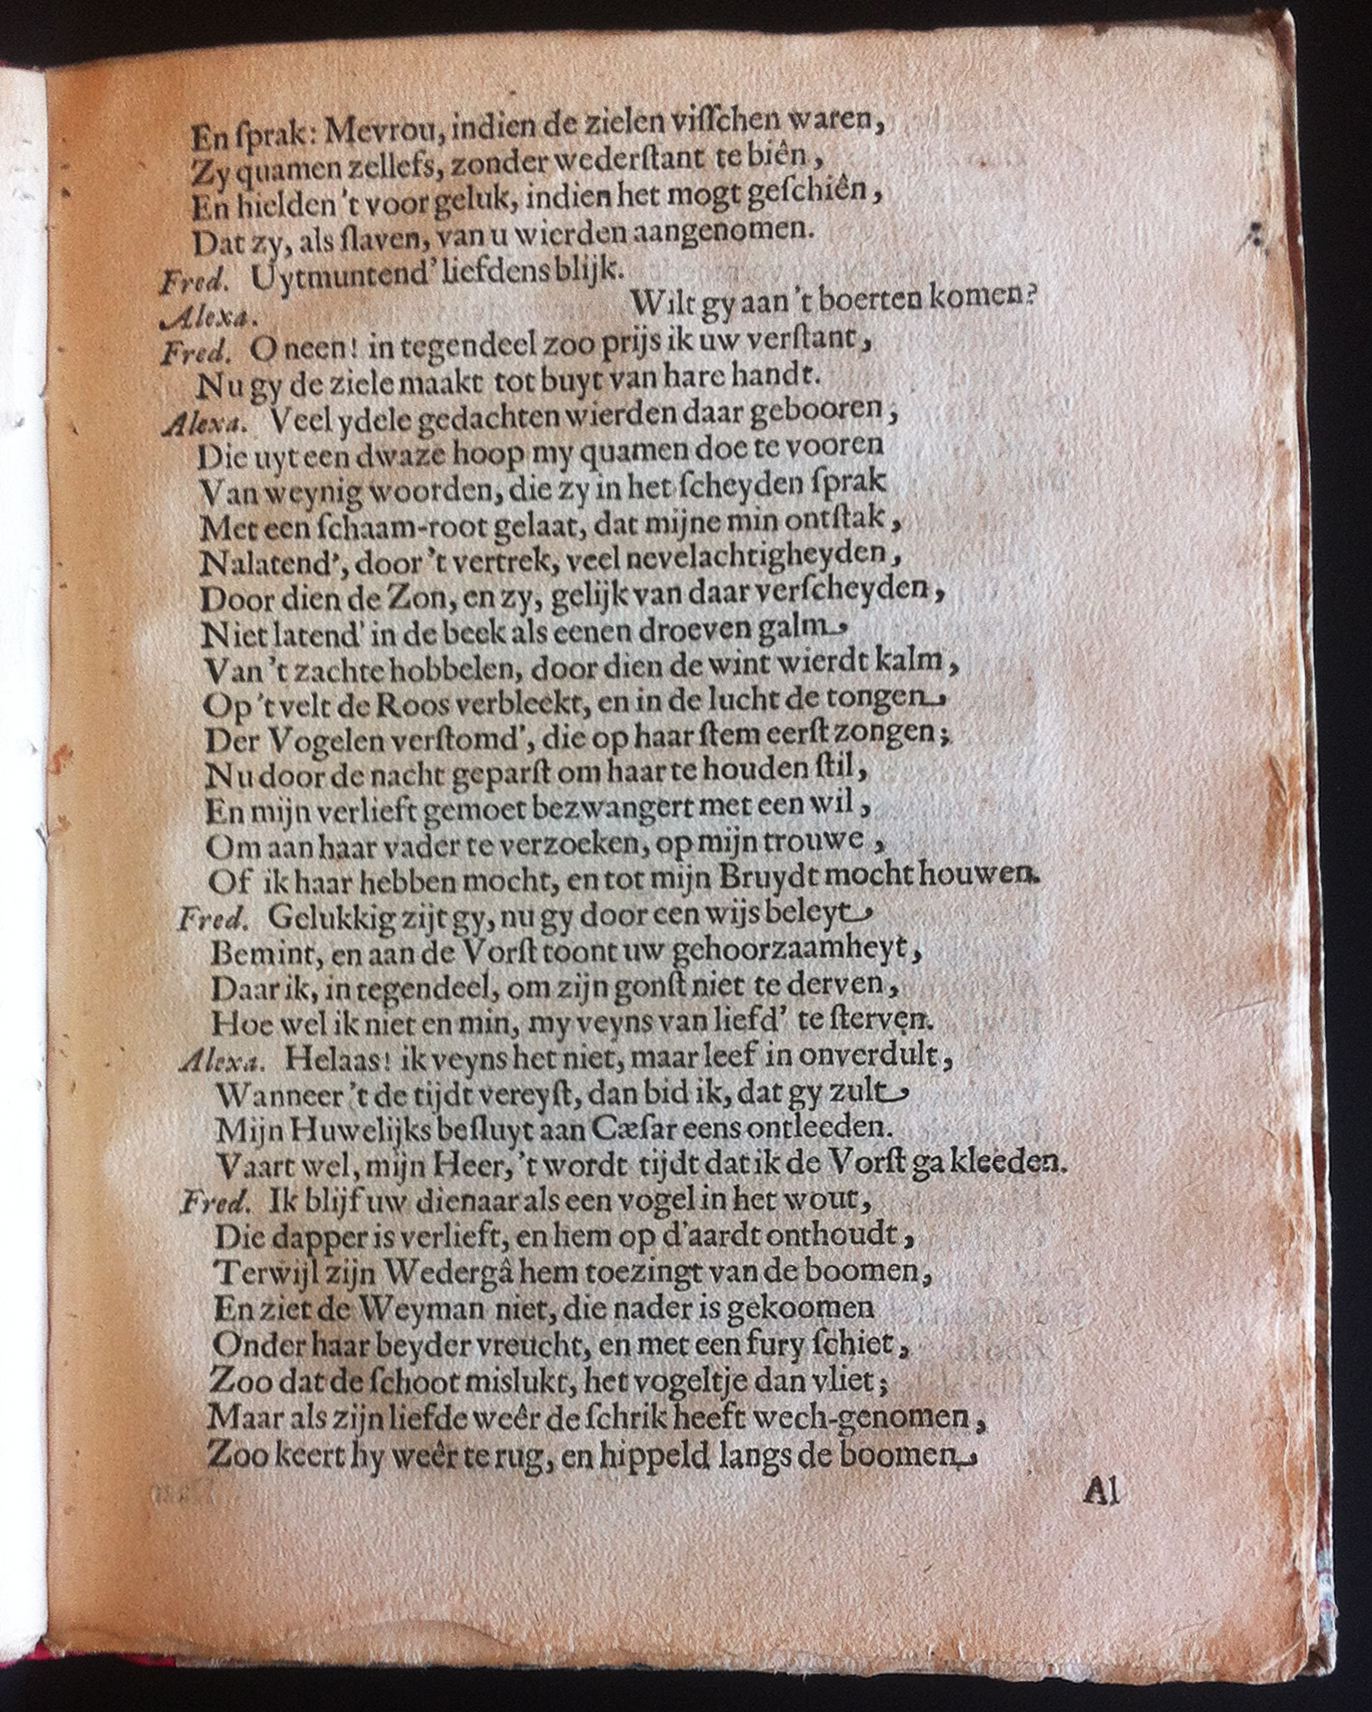 En ſprak: Mevrou, indien de zielen viſſchen waren,
Zy quamen zellefs, zonder wederſtant te biên,
En hielden 't voor geluk, indien het mogt geſchiên,
Dat zy, als ſlaven, van u wierden aangenomen.
Fred. Uytmuntend' liefdens blijk.
Alexa. Wilt gy aan 't boerten komen?
Fred. O neen! in tegendeel zoo prijs ik uw verſtant,
Nu gy de ziele maakt tot buyt van hare handt.
Alexa. Veel ydele gedachten wierden daar gebooren,
Die uyt een dwaze hoop my quamen doe te vooren
Van weynig woorden, die zy in het ſcheyden ſprak
Met een ſchaam-root gelaat, dat mijne min ontſtak,
Nalatend', door 't vertrek, veel nevelachtigheyden,
Door dien de Zon, en zy, gelijk van daar verſcheyden,
Niet latend' in de beek als eenen droeven galm
Van 't zachte hobbelen, door dien de wint wierdt kalm,
Op 't velt de Roos verbleekt, en in de lucht de tongen
Der Vogelen verſtomd', die op haar ſtem eerſt zongen;
Nu door de nacht geparſt om haar te houden ſtil,
En mijn verlieft gemoet bezwangert met een wil,
Om aan haar vader te verzoeken, op mijn trouwe,
Of ik haar hebben mocht, en tot mijn Bruydt mocht houwen.
Fred. Gelukkig zijt gy, nu gy door een wijs beleyt
Bemint, en aan de Vorſt toont uw gehoorzaamheyt,
Daar ik, in tegendeel, om zijn gonſt niet te derven,
Hoe wel ik niet en min, my veyns van liefd' te ſterven.
Alexa. Helaas! ik veyns het niet, maar leef in onverdult,
Wanneer 't de tijdt vereyſt, dan bid ik, dat gy zult
Mijn Huwelijks beſluyt aan Cæſar eens ontleeden.
Vaart wel, mijn Heer, 't wordt tijdt dat ik de Vorſt ga kleeden.
Fred. Ik blijf uw dienaar als een vogel in het wout,
Die dapper is verlieft, en hem op d'aardt onthoudt,
Terwijl zijn Wedergâ hem toezingt van de boomen,
En ziet de Weyman niet, die nader is gekoomen
Onder haar beyder vreucht, en met een fury ſchiet,
Zoo dat de ſchoot mislukt, het vogeltje dan vliet;
Maar als zijn liefde weêr de ſchrik heeft wech-genomen,
Zoo keert hy weêr te rug, en hippeld langs de boomen
Al